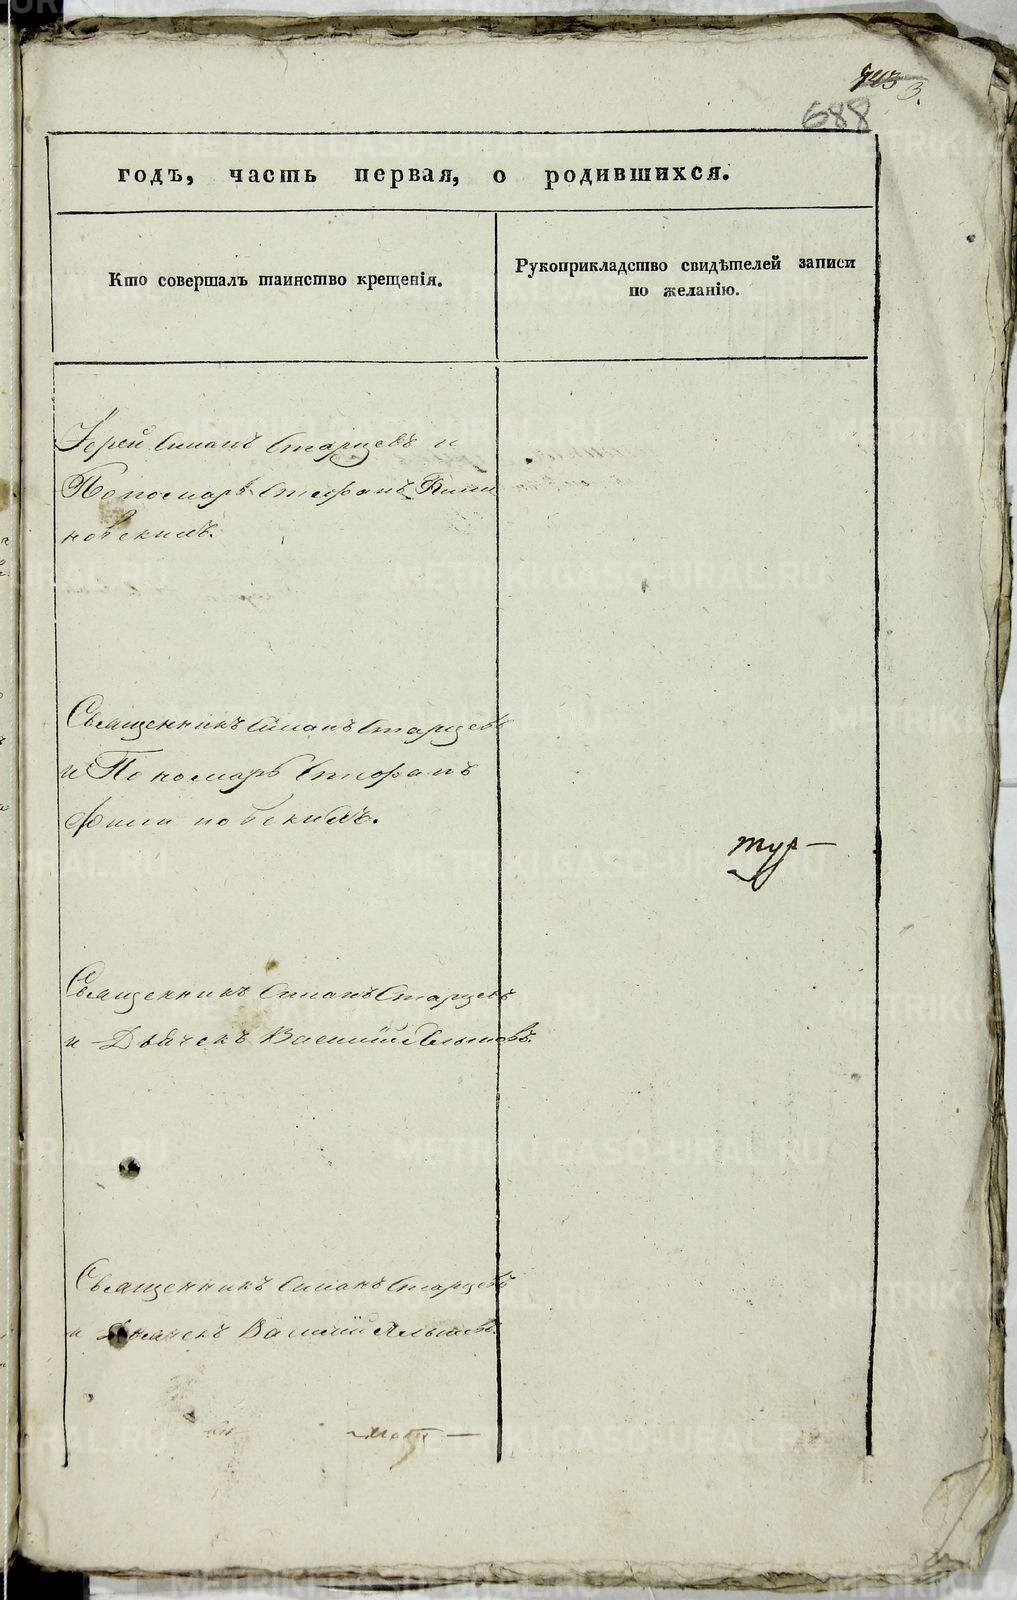 743 3.
688
годъ, часть первая, о родившихся.
Кто совершалъ таинство крещенія.
Рукоприкладство свидѣтелей записи
по желанію.
Іерей Симонъ Старцевъ и
Пономарь Стефанъ Фили
новскимъ.
Священникъ Симонъ Старцевъ
и Пономарь Стефанъ
Филиновскимъ.
Священникъ Симонъ Старцевъ
и Дьячекъ Василій
Священникъ Симонъ Старцевъ
и Дьячекъ Василій
METRIKI.GASO-URAL.RU